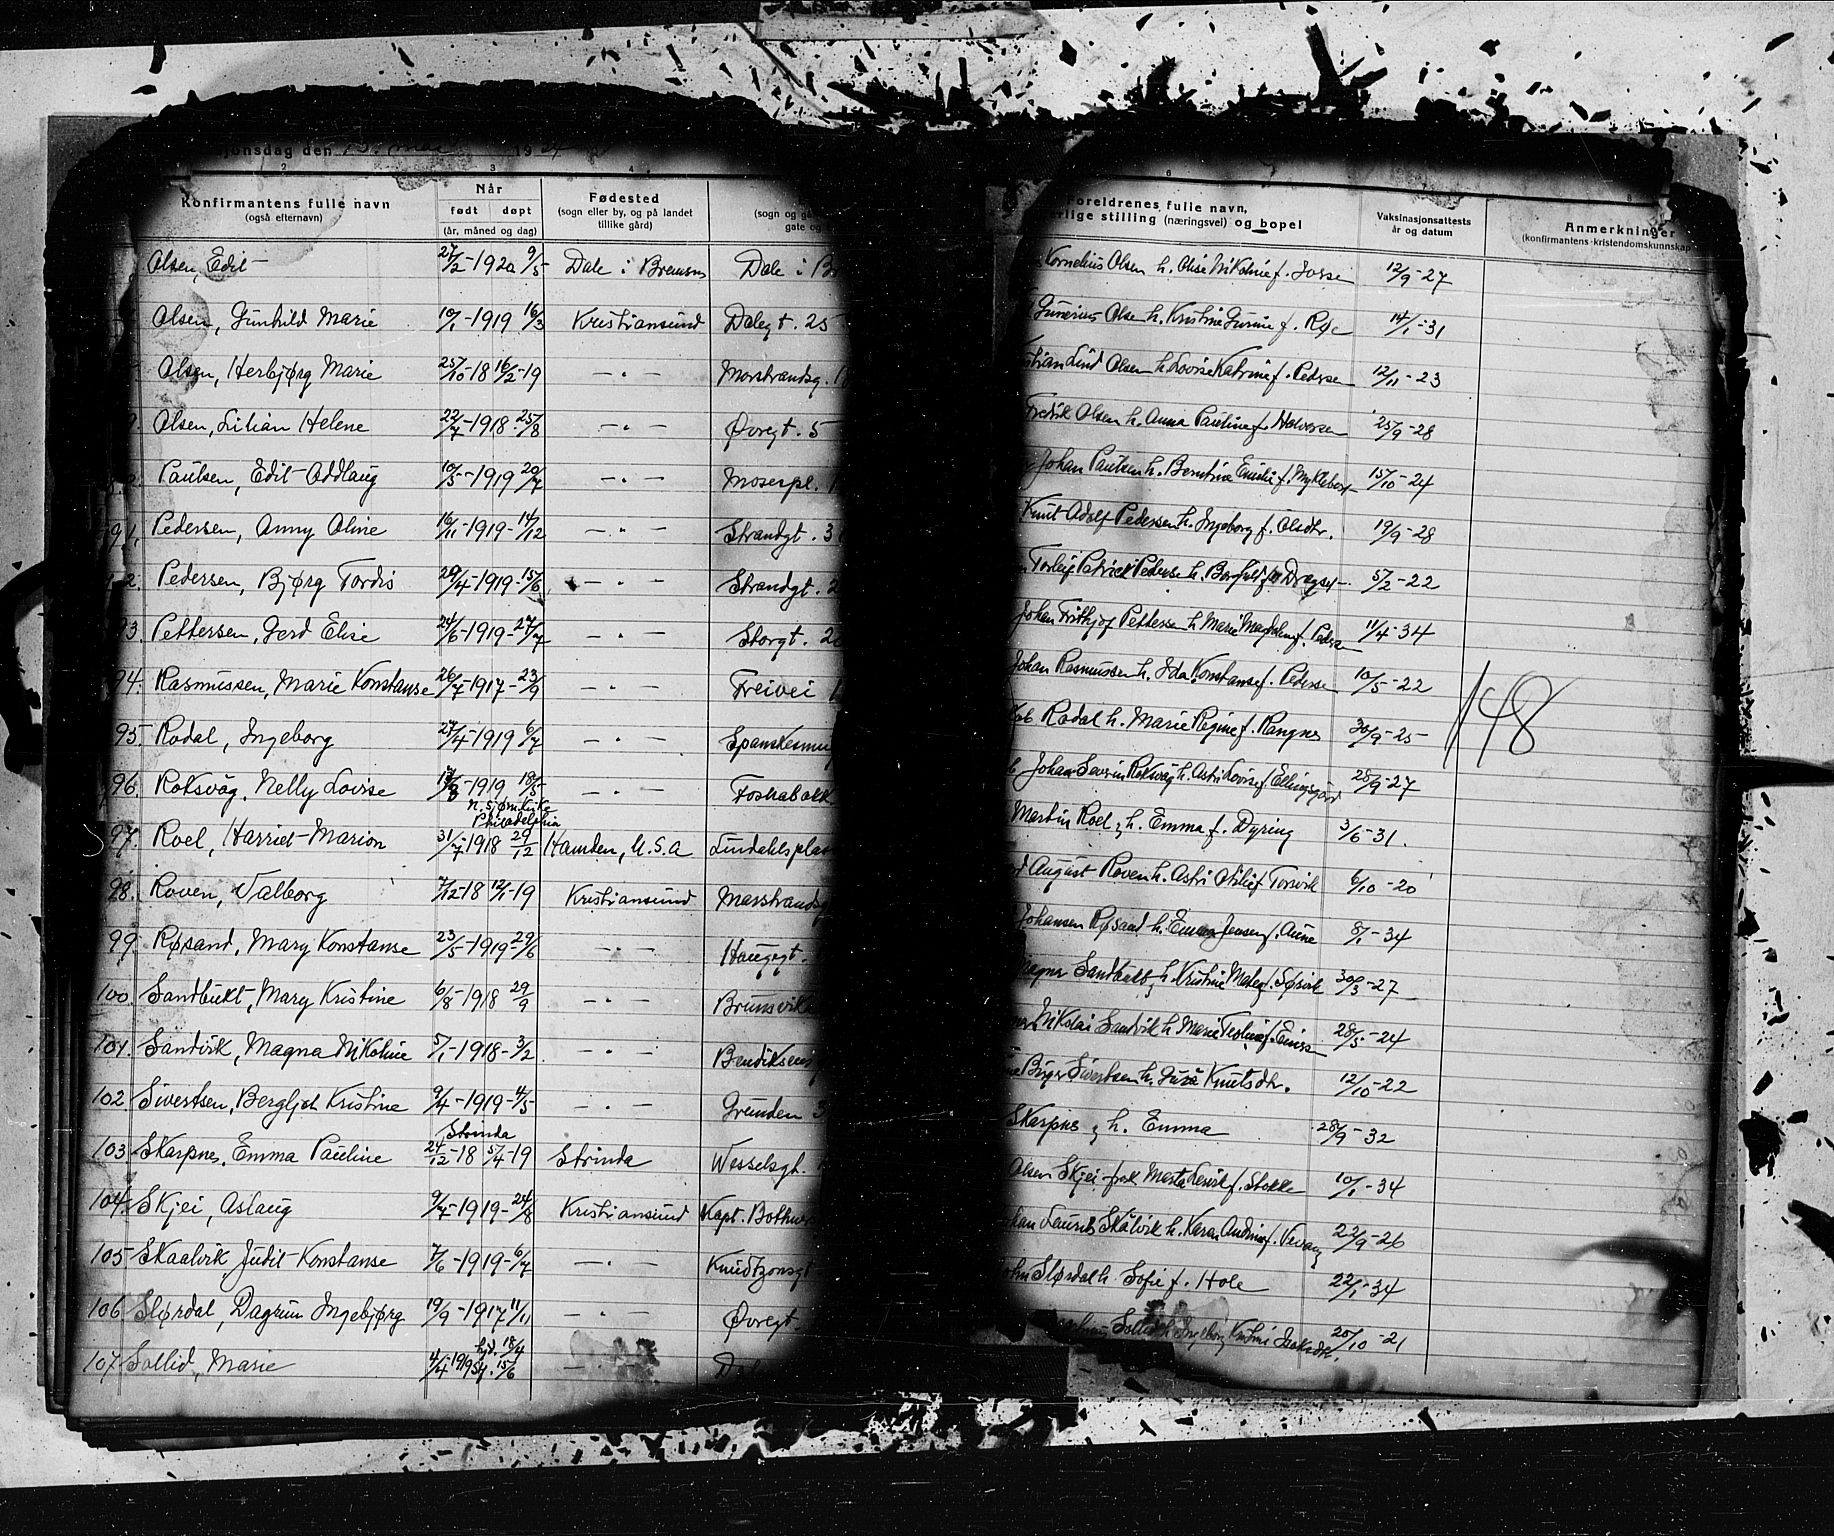 jonsdag den 13. mai 1934
2 3 4 6 7 8
Konfirmantens fulle navn (også efternavn) Når født døpt (år, måned og dag) Fødested (sogn eller by, og på landet tillike gård) (sogn og gå gate og Foreldrenes fulle navn, rlige stilling (næringsvei) og bopel Vaksinasjonsattests år og datum Anmerkninger (konfirmantens kristendomskunnskap
Olsen, Edit 27/2-1920 9/5 Dale i Bremsnes Dale i Br Kornelius Olsen h. Olise Nikoline f. Josse 12/9-27
Olsen, Gunhild Marie 10/1-1919 16/3 Kristiansund Dalegt. 25 Gunerius Olsen h. Kristine Gurine f. Røe 14/1-31
Olsen, Herbjørg Marie 25/10-18 16/2-19 — " — Morstrandsg. Lind Olsen h. Lovise Katrine f. Pedersen 12/11-23
9. Olsen, Lilian Helene 22/7-1918 25/8 — " — Øvregt. 5 Fredrik Olsen h. Anna Pauline f. Halvorsen 25/9-28
Paulsen, Edit Oddlaug 10/5-1919 20/7 — " — Mosespl. Johan Paulsen h. Berntine Emilie f. Myklebost 15/10-24
91. Pedersen, Anny Oline 16/11-1919-14/12 — " — Strandgt. 3 Knut Adolf Pedersen h. Ingeborg f. Olsdtr. 19/9-28
2. Pedersen, Bjørg Tordis 20/4-1919-15/6 — " — Strandgt. 2 Torleif Patrick Pedersen h. Borghild f. Dragset 5/2-22
93. Pettersen, Gerd Elise 24/6-1919-27/7 — " — Storgt. 2 Johan Fritjof Pettersen h. Marie Magdalena f. Peders 11/4-34
94. Rasmussen, Marie Konstanse 26/7-1917-23/9 — " — Freivei Johan Rasmussen h. Ida Konstanse f. Pedersen 10/5-22
148
95. Rodal, Ingeborg 27/4-1919 6/7 — " — Spanskesmu Rodal h. Marie Regine f. Rangnes 30/9-25
96. Roksvåg, Nelly Lovise 1919 18/5 — " — Foshabakk Johan Severin Roksvåg h. Astri Lovise f. Ellingsgård 28/9-27
n. sjømkirke
Philadelphia
97. Roel, Harriet Marion 31/7-1918 29/12 Hamden, U.S.A Lindahlsplas Martin Roel, h. Emma f. Dyring 3/6-31.
98. Roven, Valborg 7/12-18 12/1-19 Kristiansund Marstrandsg August Roven h. Astri Otilie f. Torvik 6/10-20
99. Røsand, Mary Konstanse 23/5-1919 29/6 — " — Haugegt. Johansen Røsand h. Emma Jensen f. Aune 8/1-34
100. Sandbukt, Mary Kristine 6/8-1918 29/9 — " — Brunsvik Magnar Sandbukt, h. Kristine f. Sørvik 30/3-27
101. Sandvik, Magna Nikoline 5/1-1918-3/2 — " — Bendiksens Nikolai Sandvik h. Marie f. 28/5-24
102. Sivertsen, Bergljot Kristine 9/4-1919-4/5 — " — Grunden 3 Birger Sivertsen h. Guri Knutsdtr. 12/10-22
Strinda
103. Skarpnes, Emma Pauline 24/12-18 5/4-19 Strinda Wesselsgt. Skarpnes, h. Emma 28/9-32
104. Skjei, Aslaug 9/7-1919-24/8 Kristiansund Kapt. Bothners Olsen Skjei f. Stokke 10/1-34
105. Skaalvik, Judit Konstanse 7/6-1919-6/7 — " — Knudtzonsgt Johan Laurits Skålvik h. Karen Andrine f. Vevang 22/9-26
106. Slørdal, Dagrun Ingebjørg 19/9-1917 11/11 — " — Øvregt John Slørdal h. Sofie f. Hole 22/1-34
hjd. 18/4
107. Sollid, Marie 4/4 1919 st. 15/6 — Da Sollid h. Ingeborg Kristine Isaksdtr. 20/10-21